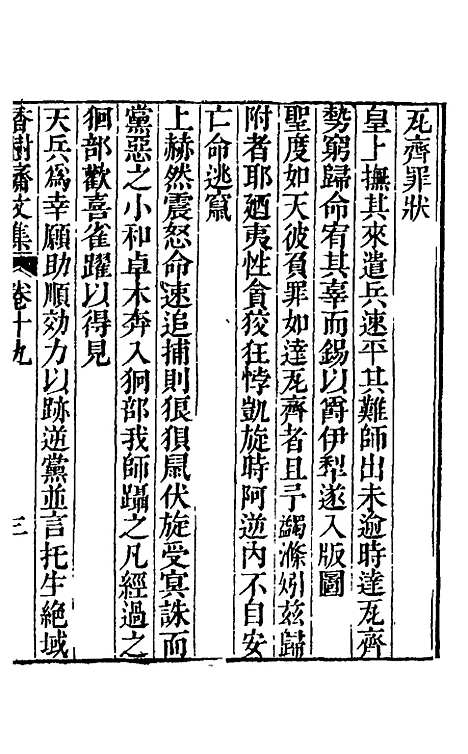 瓦齊罪狀
皇上撫其來遣兵速平其難師出未逾時達瓦齊
勢窮歸命宥其辜而錫以爵伊犁遂入版圖
聖度如天彼負罪如達瓦齊者且予蠲滌矧兹歸
附者耶廼夷性貪狡狂悖凱旋時阿逆内不自安
亡命逃竄
上赫然震怒命速追捕則狼狽鼠伏旋受㝠誅而
黨惡之小和卓木奔入狪部我師躡之凡經過之
狪部歡喜雀躍以得見
天兵為幸願助順効力以跡逆黨並言托生絶域
香樹齋文集 卷十九 三